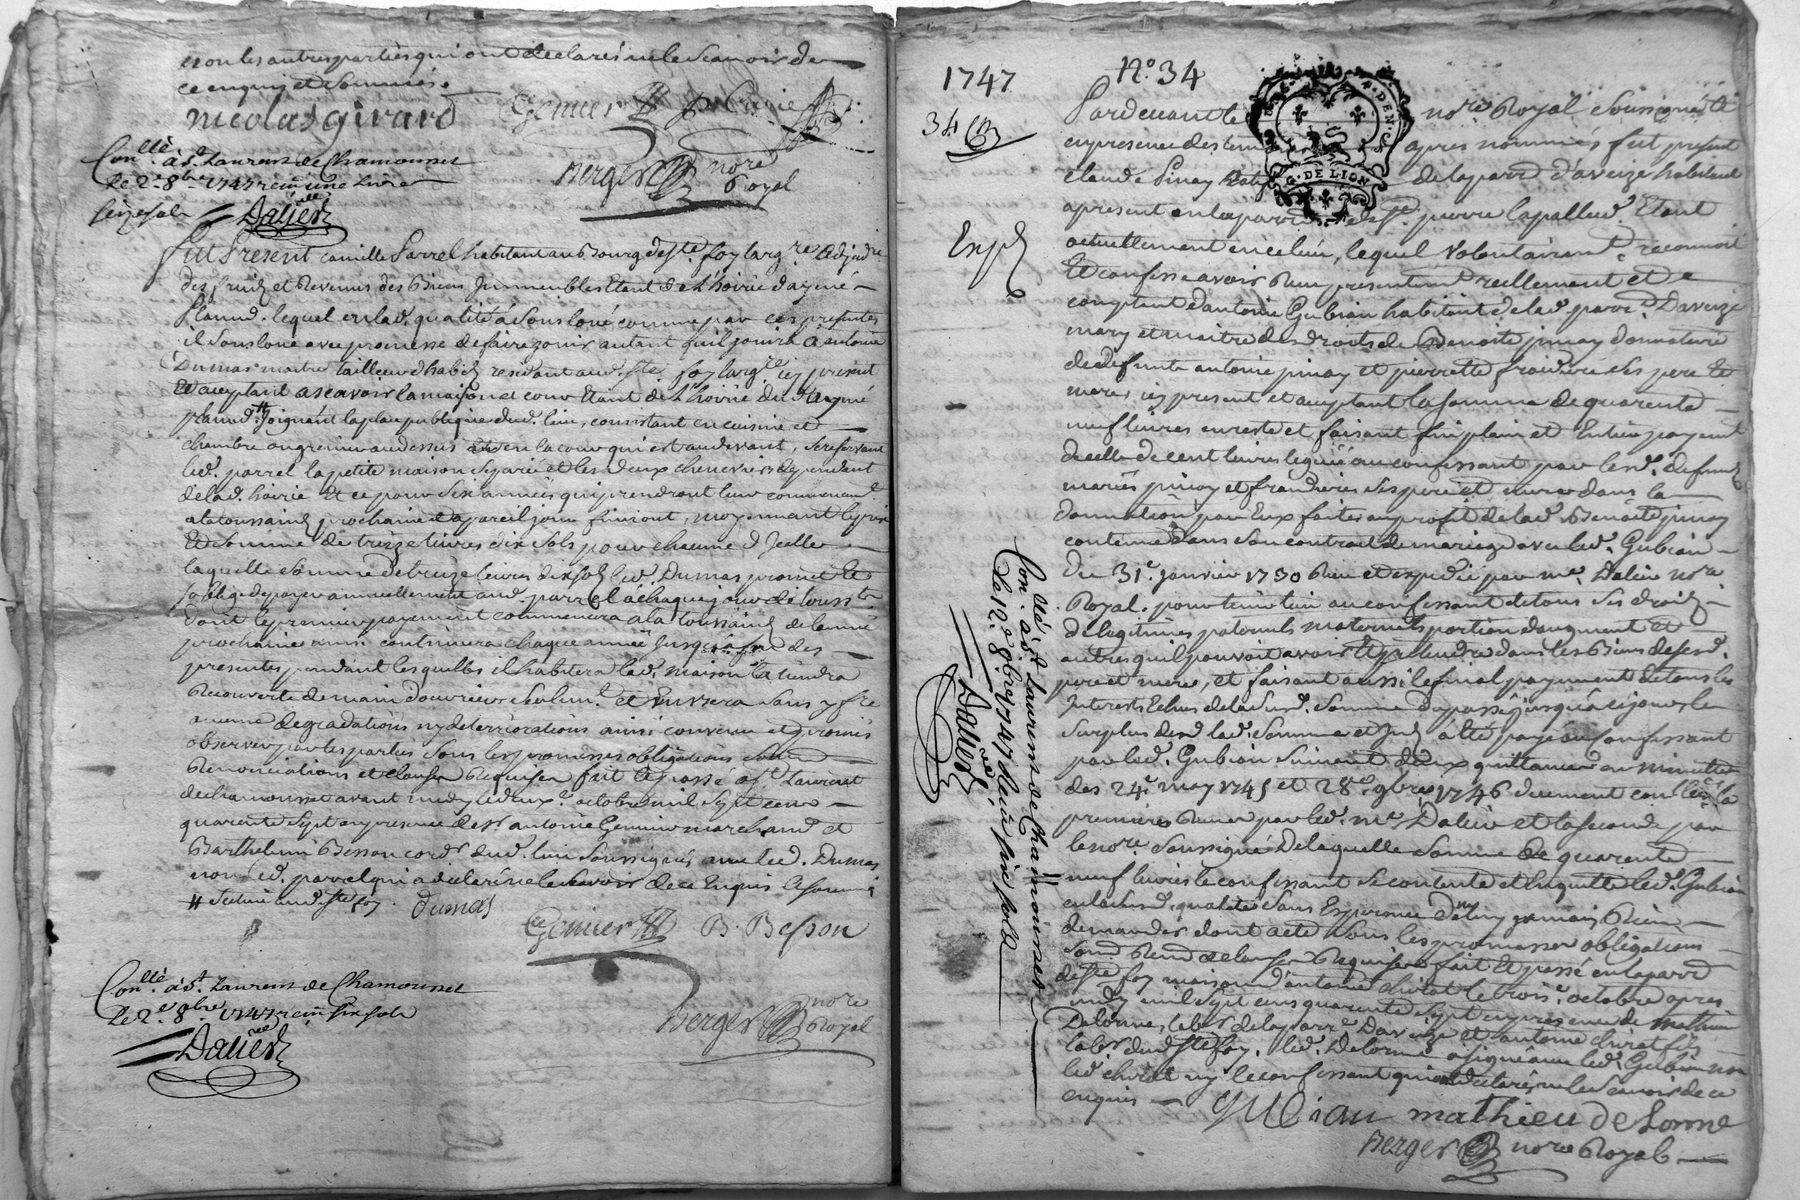 non les autres parties qui ont declaré ne le scavoir de
ce enquis et sommés.
nicolas girard
Genier
Berger nore Royal
Con.llé à S.t Laurens de Chamousset
Le 2.e 8bre 1747 reçu une livre
seize sols
Dalier
Fut Present Camille Parrel habitant au Bourg de S.te foy larg.re adjud.re
des fruits et Revenus des Biens Immeubles Etant de L'hoirie d'aymé
planud. lequel en lad. qualité a Sous loué comme par ces presentes
il Sous loue avec promesse de faire jouir autant qu'il jouira à antoine
Dumas maitre tailleur d'habits residant aud. S.te foy larg.re icy present
Et acceptant ascavoir la maison et cour Etant de L'hoirie dud. Aymé
planud. # joignant la place publique dud. lieu, consistant en cuisine et
chambre ou grenier au dessus et en la cour qui est au devant, se reservant
led. parrel la petite maison separée et les deux chenevriers dependant
de lad. hoirie Et ce pour Six années qui prendront leur commencem.t
a la toussaint prochaine et a pareil jour finiront, moyennant le prix
Et Somme de treize livres dix sols pour chacune d'Icelles
laquelle Somme de treize livres dix sols led. Dumas promet et
s'oblige de payer annuellement aud. parrel a chaque jour de touss.ts
dont le premier payement commencera a la toussaint de l'année
prochaine ainsi continuera chaque année jusques a fin des
presentes pendant lesquelles il habitera lad. maison la tiendra
Recouverte de main d'ouvrier seulem.t et en usera sans y fre
aucune degradations ny deterriorations ainsi convenu et promis
observer par les parties sous les promesses obligations
Renonciations et clauses Requises fait et passé a S.t Laurent
de chamousset avant midy le deux.e octobre mil Sept cens
quarente Sept en presence de S.r antoine Genier marchand et
Barthelemi Besson cord.r dud. lieu Soussignés avec led. Dumas
non led. parrel qui a declaré ne le scavoir de ce Enquis et sommé
# Scitué aud. S.te foy.
Dumas
Genier
B. Besson
Berger nore Royal
Con.llé à S.t Laurens de Chamousset
Le 2.e 8bre 1747 reçu six sols
Dalier
1747
N.o 34
34
Exp.
G. DE LION
Pardevant le nore Royal Soussigné Et
en presence des temoins apres nommés fut present
claude pinay de la parr. d'aveize habitant
a present en la parr. de S.t pierre lapallud. Etant
actuellement en ce lieu, lequel volontairem.t reconnoit
Et confesse avoir Reçu presentem.t reellement et
comptant d'antoine Gubian habitant de lad. parr. D'aveize
mary et maitre des droits de Benoite pinay donnataire
de deffunts antoine pinay et pierrette froidiere ses pere Et
mere, icy present et acceptant la somme de quarente
neuf livres en reste et faisant fin plain et Entier payem.t
de celle de cent livres leguée au confessant par lesd. defunts
mariés pinay et froidiere ses pere et mere dans la
donnation par Eux faite au profit de lad. Benoite pinay
contenue dans son contrat de mariage avec led. Gubian
du 31.e janvier 1730 Reçu et expedié par m.e Dalier nore
Royal. pour tenir lieu au confessant de tous ses droits
de legitimes paternels maternels portion d'augment et
autres qu'il pouvoit avoir et pretendre dans les Biens de sesd.
pere et mere, et faisant aussi le final payement de tous les
Interets Echus de lad. susd. Somme du passé jusqu'a ce jour le
surplus de lad. Somme et Int. a été payé au confessant
par led. Gubian Suivant deux quittances en minutte
des 24.e may 1745 et 28.e 9bre 1746 duement con.llées la
premiere Reçue par led. m.e Dalier et la seconde par
le nore Soussigné De laquelle Somme de quarente
neuf livres le confessant se contente et en quitte led. Gubian
en lad. susd. qualité sans Esperance de luy jamais Rien
demander dont acte sous les promesses obligations
Soum. Renon. et clauses Requises fait Et passé en la parr.
de S.te foy maison d'antoine chirat le trois.e octobre apres
midy mil Sept cens quarente Sept en presence de mathieu
Delorme lab.r de la parr. D'aveize et antoine chirat fils
lab.r dud. S.te foy. led. Delorme a signé avec led. Gubian non
led. chirat ny le confessant qui ont declaré ne le scavoir de ce
enquis
gubian mathieu de Lorme
Berger nore Royal
Con.llé à S.t Laurens de Chamousset
Le 12.e 8bre 1747 Reçu six sols
Dalier